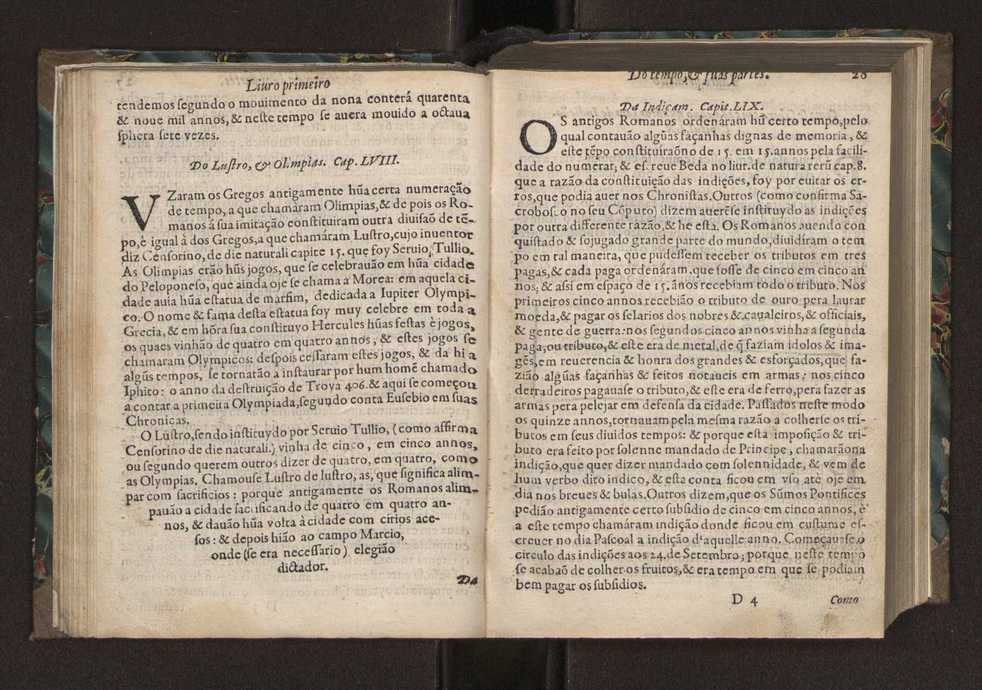 Liuro primeiro
tendemos ſegundo o mouimento da nona conterá quarenta
& noue mil annos, & neſte tempo ſe auera mouido a octaua
ſphera ſete vezes.
Do Luſtro, & Olimpias. Cap. LVIII.
VZaram os Gregos antigamente hũa certa numeração
de tempo, a que chamáram Olimpias, & de pois os Ro-
manos á ſua imitação conſtituiram outra diuiſaõ de tẽ-
po, è igual à dos Gregos, a que chamáram Luſtro, cujo inuentor
diz Cenſorino, de die naturali capite 15. que foy Seruio, Tullio.
As Olimpias erão hũs jogos, que ſe celebrauão em hũa cidade
do Peloponeſo, que ainda oje ſe chama a Morea: em aquela ci-
dade auia hũa eſtatua de marfim, dedicada a Iupiter Olympi-
co. O nome & fama deſta eſtatua foy muy celebre em toda a
Grecia, & em hõra ſua conſtituyo Hercules hũas feſtas è jogos,
os quaes vinhão de quatro em quatro annos, & eſtes jogos ſe
chamaram Olympicos: deſpois ceſſaram eſtes jogos, & da hi a
algũs tempos, ſe tornatão a inſtaurar por hum homẽ chamado
Iphito: o anno da deſtruição de Troya 406. & aqui ſe começou
a contar a primeira Olympiada, ſegundo conta Euſebio em ſuas
Chronicas.
O Luſtro, ſendo inſtituydo por Seruio Tullio, (como affirma
Cenſorino de die naturali.) vinha de cinco, em cinco annos,
ou ſegundo querem outros dizer de quatro, em quatro, como
as Olympias, Chamouſe Luſtro de luſtro, as, que ſignifica alim-
par com ſacrificios: porque antigamente os Romanos alim-
pauão a cidade ſacrificando de quatro em quatro an-
nos, & dauão hũa volta à cidade com cirios ace-
ſos: & depois hião ao campo Marcio,
onde (ſe era neceſſario) elegião
dictador.
Da
Do tempo, & ſuas partes. 28
Da Indiçam. Capit. LIX.
OS antigos Romanos ordenáram hũ certo tempo, pelo
qual contauão algũas façanhas dignas de memoria, &
eſte tẽpo conſtituiraõno de 15. em 15. annos pela facili-
dade do numerar; & eſcreue Beda no liur. de natura rerũ cap. 8.
que a razão da conſtituição das indições, foy por euitar os er-
ros, que podia auer nos Chroniſtas. Outros (como confirma Sa-
croboſco no ſeu Cõputo) dizem auerẽſe inſtituydo as indições
por outra differente razão, & he eſta. Os Romanos auendo con
quiſtado & ſojugado grande parte do mundo, diuidiram o tem
po em tal maneira, que pudeſſem receber os tributos em tres
pagas, & cada paga ordenáram. que foſſe de cinco em cinco an
nos, & aſſi em eſpaço de 15. ânos recebiam todo o tributo. Nos
primeiros cinco annos recebião o tributo de ouro pera laurar
moeda, & pagar os ſelarios dos nobres & caualeiros, & officiais,
& gente de guerra: nos ſegundos cinco annos vinha a ſegunda
paga, ou tributo, & eſte era de metal, de q̃ faziam idolos & ima-
gẽs, em reuerencia & honra dos grandes & esforçados, que fa-
zião algũas façanhas & feitos notaueis em armas: nos cinco
derradeiros pagauaſe o tributo, & eſte era de ferro, pera fazer as
armas pera pelejar em defenſa da cidade. Paſſados neſte modo
os quinze annos, tornauam pela meſma razão a colherſe os tri-
butos em ſeus diuidos tempos: & porque eſta impoſição & tri-
buto era feito por ſolenne mandado de Principe, chamarãona
indição, que quer dizer mandado com ſolennidade, & vem de
hum verbo dito indico, & eſta conta ficou em vſo até oje em
dia nos breues & bulas. Outros dizem, que os Sũmos Pontifices
pedião antigamente certo ſubſidio de cinco em cinco annos, è
a eſte tempo chamáram indição donde ficou em cuſtume eſ-
creuer no dia Paſcoal a indição d'aquelle anno. Começauaſe o
circulo das indições aos 24. de Setembro; porque neſte tempo
ſe acabaõ de colher os fruitos, & era tempo em que ſe podiam
bem pagar os ſubſidios.
D 4 Como